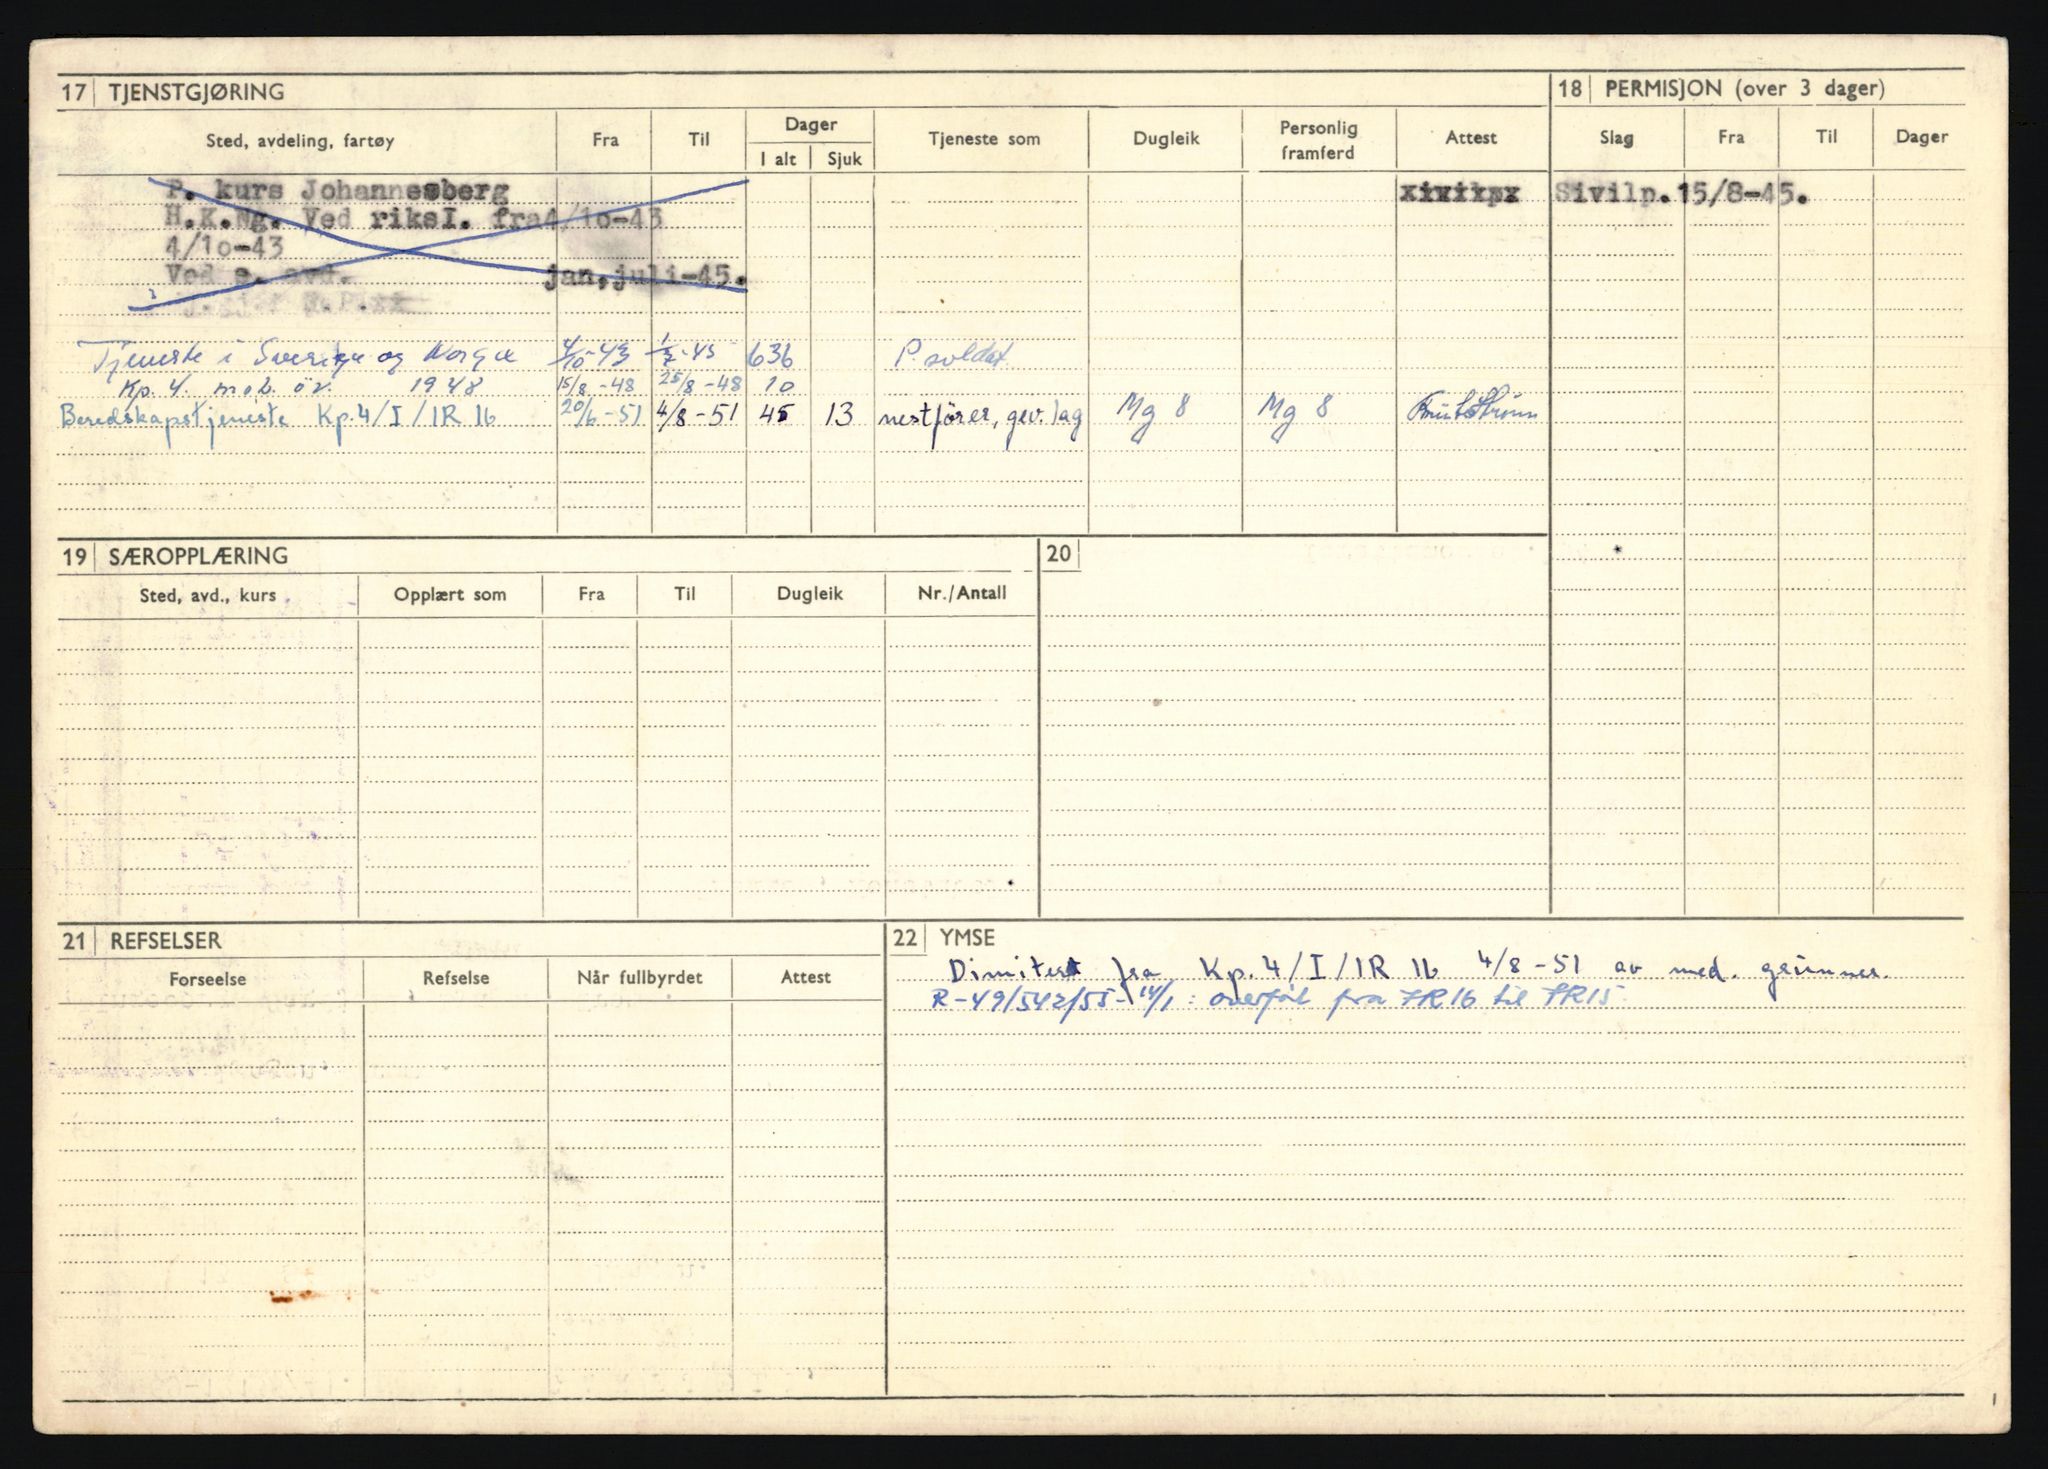 17 TJENSTGJØRING
18 PERMISJON (over 3 dager)
Sted, avdeling, fartøy Fra Til Dager Tjeneste som Dugleik Personlig framferd Attest Slag Fra Til Dager
I alt Sjuk
P. kurs Johannesberg Sivilp. 15/8-45.
H.K.Ng. Ved riksI. fra 4/10-43
4/10-43
Ved s. avd. jan,juli-45.
Tjeneste i Sverige og Norge 4/10-43 1/7-45 636 P. soldat.
Kp. 4. mob. öv. 1948 15/8-48 25/8-48 10
Beredskapstjeneste Kp. 4/I/IR 16 20/6-51 4/8-51 45 13 nestförer, gev. lag Mg 8 Mg 8
19 SÆROPPLÆRING
20
Sted, avd., kurs Opplært som Fra Til Dugleik Nr./Antall
21 REFSELSER
22 YMSE
Forseelse Refselse Når fullbyrdet Attest
Dimitert fra Kp. 4/I/IR 16 4/8-51 av med. grunner.
R-49/542/55-14/1: overføt fra IR16 til IR15.